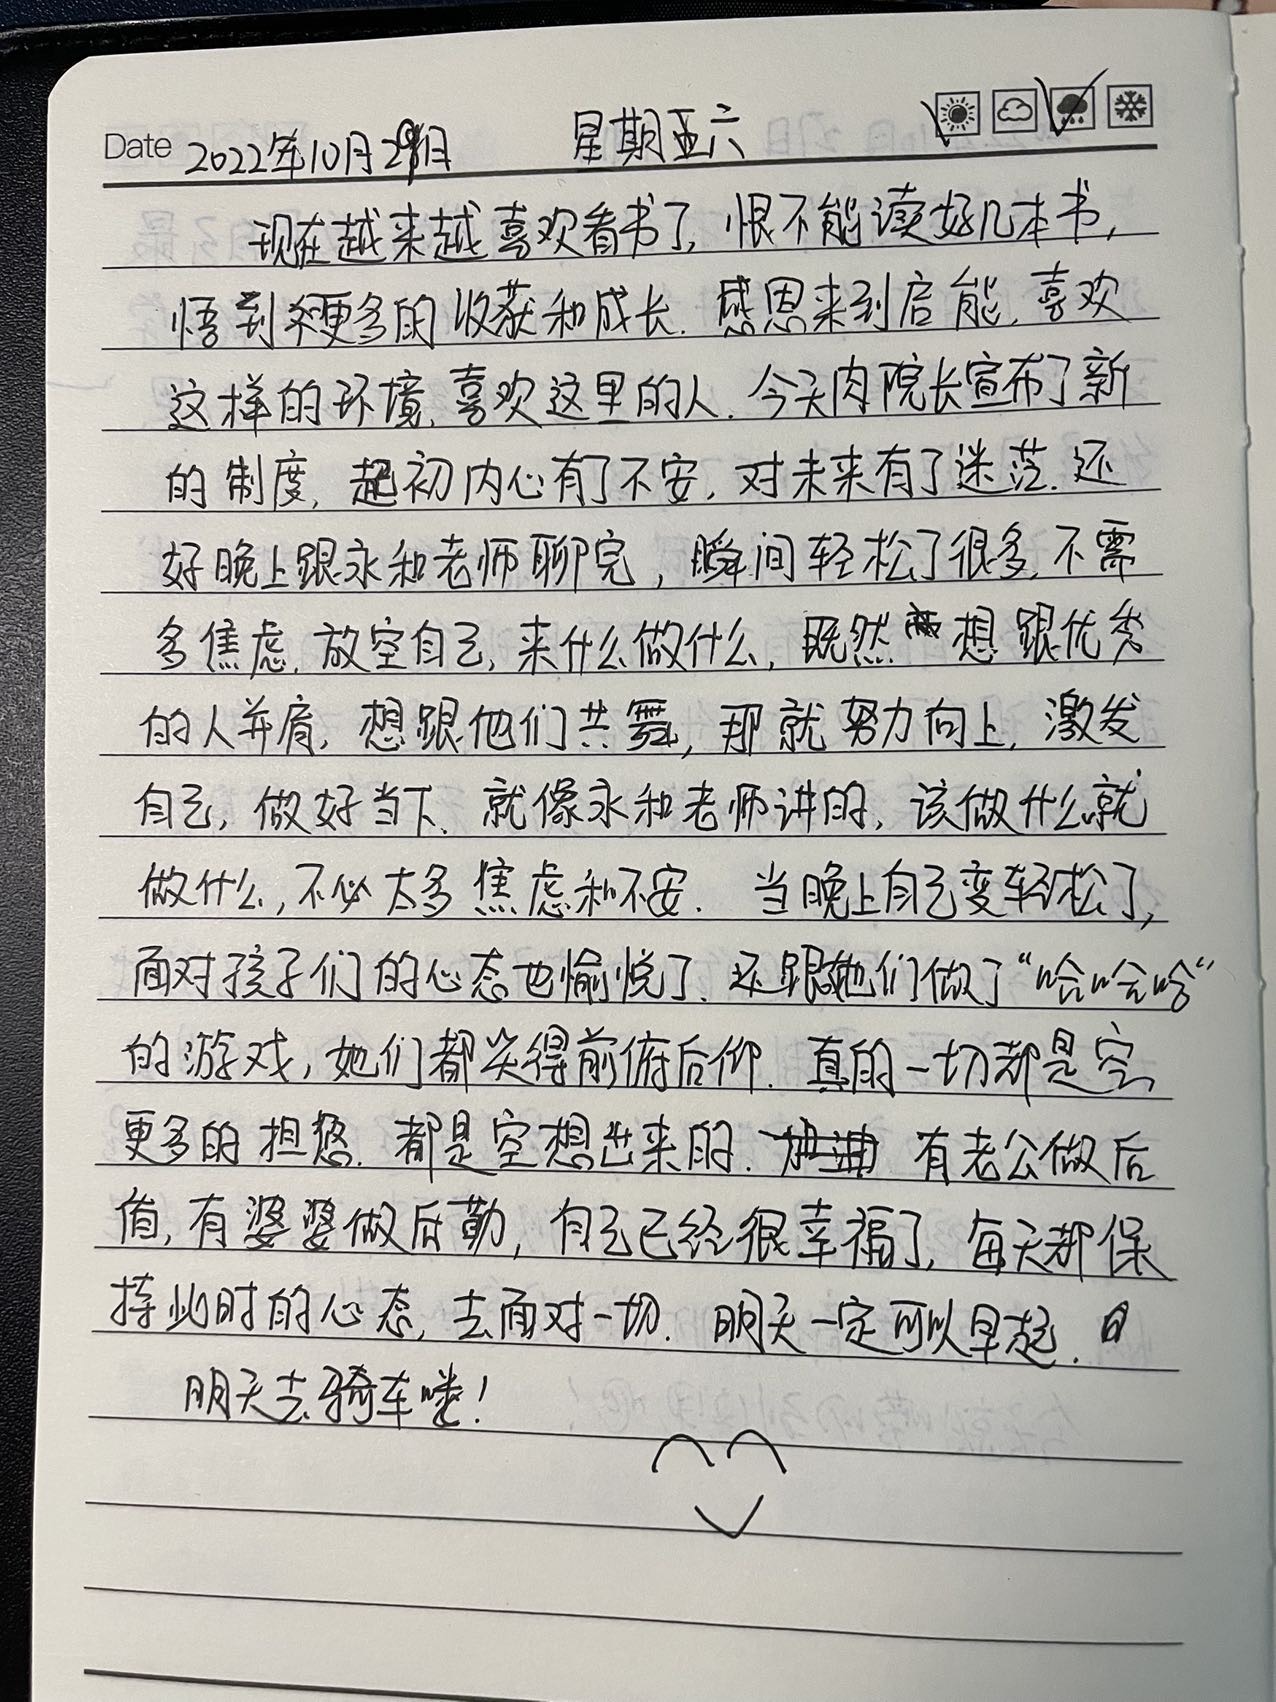 Date 2022年10月29日 星期六
现在越来越喜欢看书了,恨不能读好几本书,
悟到更多的收获和成长.感恩来到启能,喜欢
这样的环境,喜欢这里的人.今天肉院长宣布了新
的制度,起初内心有了不安.对未来有了迷茫.还
好晚上跟永和老师聊完,瞬间轻松了很多,不需
多焦虑.放空自己,来什么做什么,既然想跟优秀
的人并肩,想跟他们共舞,那就努力向上,激发
自己,做好当下.就像永和老师讲的,该做什么就
做什么,不必太多焦虑和不安.当晚上自己变轻松了,
面对孩子们的心态也愉悦了.还跟她们做了“哈哈哈“
的游戏,她们都笑得前俯后仰.真的一切都是空,
更多的担忧.都是空想出来的.有老公做后
盾,有婆婆做后勤,自己已经很幸福了,每天都保
持此时的心态,去面对一切.明天一定可以早起.
明天去骑车喽!